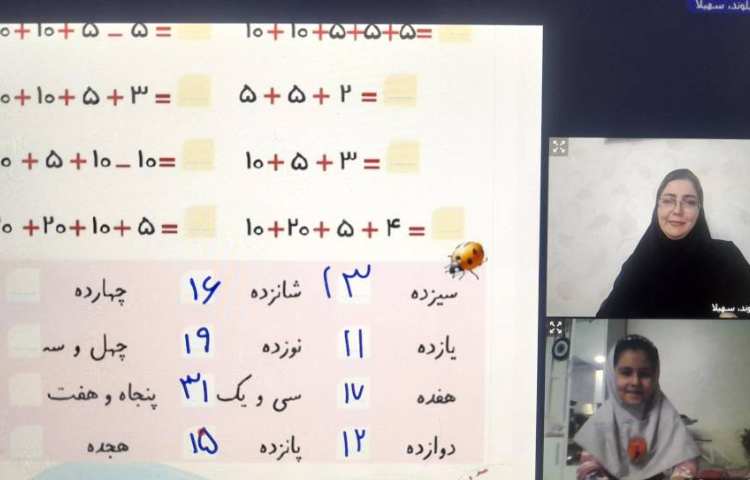 لوند، سهیلا
۱۰+۱۰+۵+۵+۵=
۰+۱۰+۵ – ۵ =
۵ + ۵ + ۲ =
۰+۱۰+ ۵ + ۳ =
۱۰+ ۵ + ۳ =
۰ + ۵ + ۱۰ – ۱۰=
۱۰+۲۰+ ۵ + ۴ =
۰ +۲۰+۱۰+ ۵ =
سیزده ۱۳ شانزده ۱۶ چهارده
یازده ۱۱ نوزده ۱۹ چهل و سه
هفده ۱۷ سی و یک ۳۱ پنجاه و هفت
دوازده ۱۲ پانزده ۱۵ هجده
وند، سهیلا